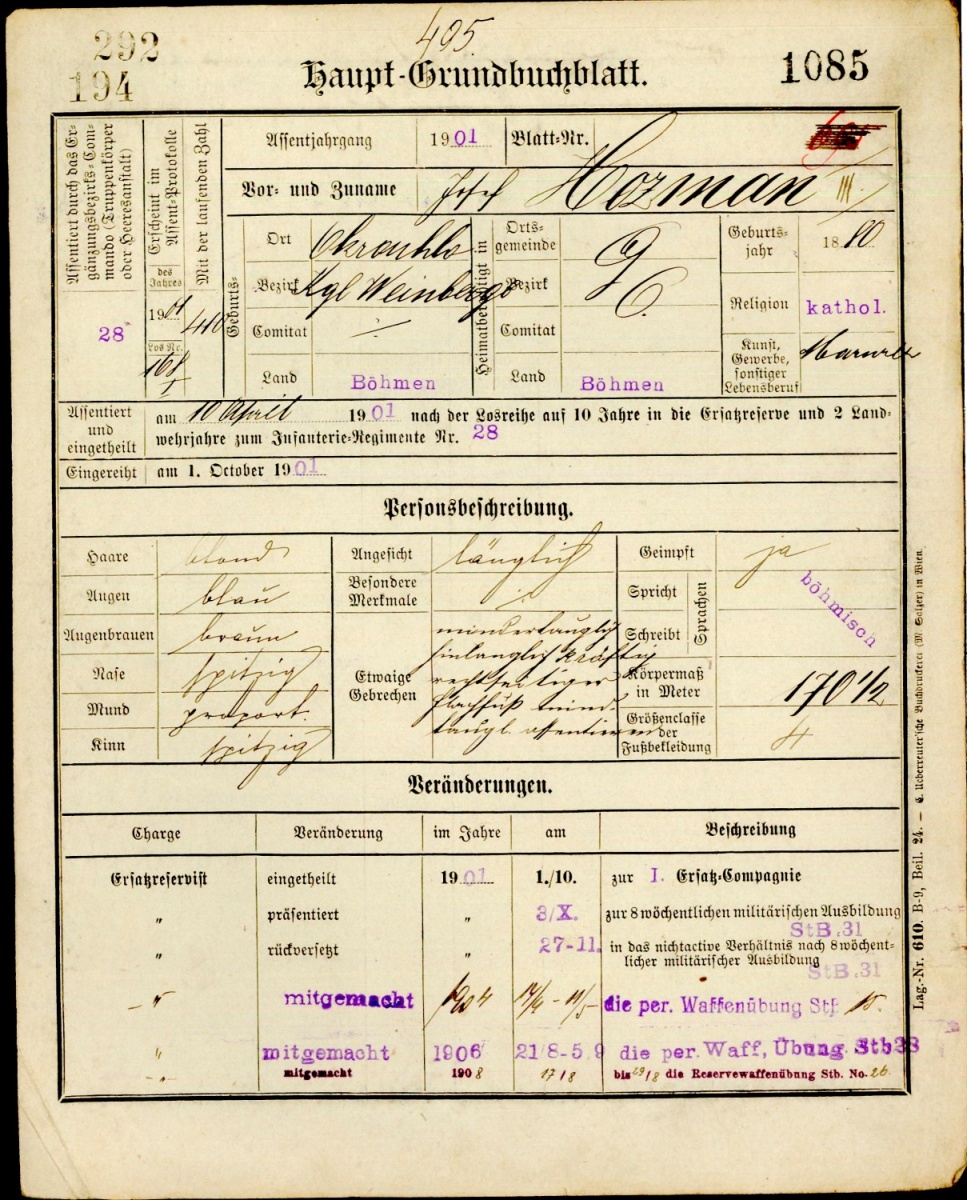 292
194
495.
Haupt-Grundbuchblatt.
1085
Assentiert durch das Er-
gänzungsbezirks-Com-
mando (Truppenkörper
oder Heeresanstalt)
28
Erscheint im
Assent-Protokolle
des
Jahres
1901
Los Nr.
168
I
Mit der laufenden Zahl
410
Assentjahrgang 1901 Blatt-Nr.
Vor- und Zuname Josef Hozman III.
Geburts-
Ort Okrouhlo
Bezirk Kgl Weinberge
Comitat ÷
Land Böhmen
Heimatberechtigt in
Orts-
gemeinde
Bezirk
Comitat
Land Böhmen
Geburts-
jahr 1880
Religion kathol.
Kunst,
Gewerbe,
sonstiger
Lebensberuf
Assentiert
und
eingetheilt
am 10 April 1901 nach der Losreihe auf 10 Jahre in die Ersatzreserve und 2 Land-
wehrjahre zum Infanterie-Regimente Nr. 28
Eingereiht am 1. October 1901
Personsbeschreibung.
Haare blond
Augen blau
Augenbrauen braun
Nase spitzig
Mund proport.
Kinn spitzig
Angesicht länglich
Besondere
Merkmale ÷
Etwaige
Gebrechen
mindertauglich
hinlänglich kräftig
rechtseitiger
Plattfuß mind.
taugl. assentieren
Geimpft ja
Spricht
Schreibt
Sprachen
böhmisch
Körpermaß
in Meter 170 1/2
Größenclasse
der
Fußbekleidung 4
Veränderungen.
Charge Veränderung im Jahre am Beschreibung
Ersatzreservist eingetheilt 1901 1./10. zur I. Ersatz-Compagnie
" präsentiert " 3/X. zur 8 wöchentlichen militärischen Ausbildung
StB.31
" rückversetzt " 27-11. in das nichtactive Verhältnis nach 8 wöchent-
licher militärischer Ausbildung
StB.31
-"- mitgemacht 1904 14/4 - 11/5 die per. Waffenübung StB 15.
" mitgemacht 1906 21/8-5.9 die per. Waff, Übung. Stb 38
-"- mitgemacht 1908 17/8 bis 29/8 die Reservewaffenübung Stb. No. 26
Lag.-Nr. 610. B-9, Beil. 24. — C. Ueberreuter'sche Buchdruckerei (M. Salzer) in Wien.